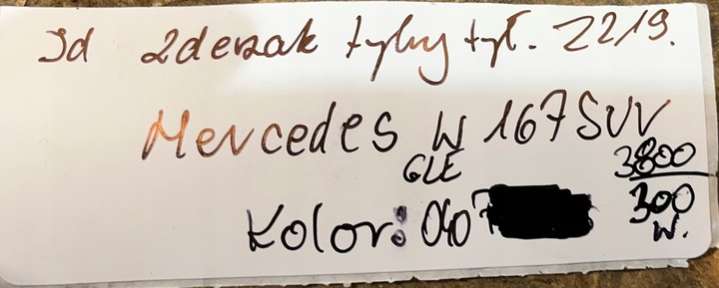 Id Zderzak tylny tył. 2219.
Mercedes W 167 SUV
GLE
3800
300
W.
Kolor: 040